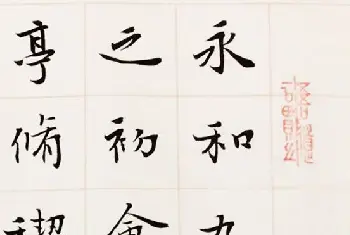 永和九
之初會
亭脩禊